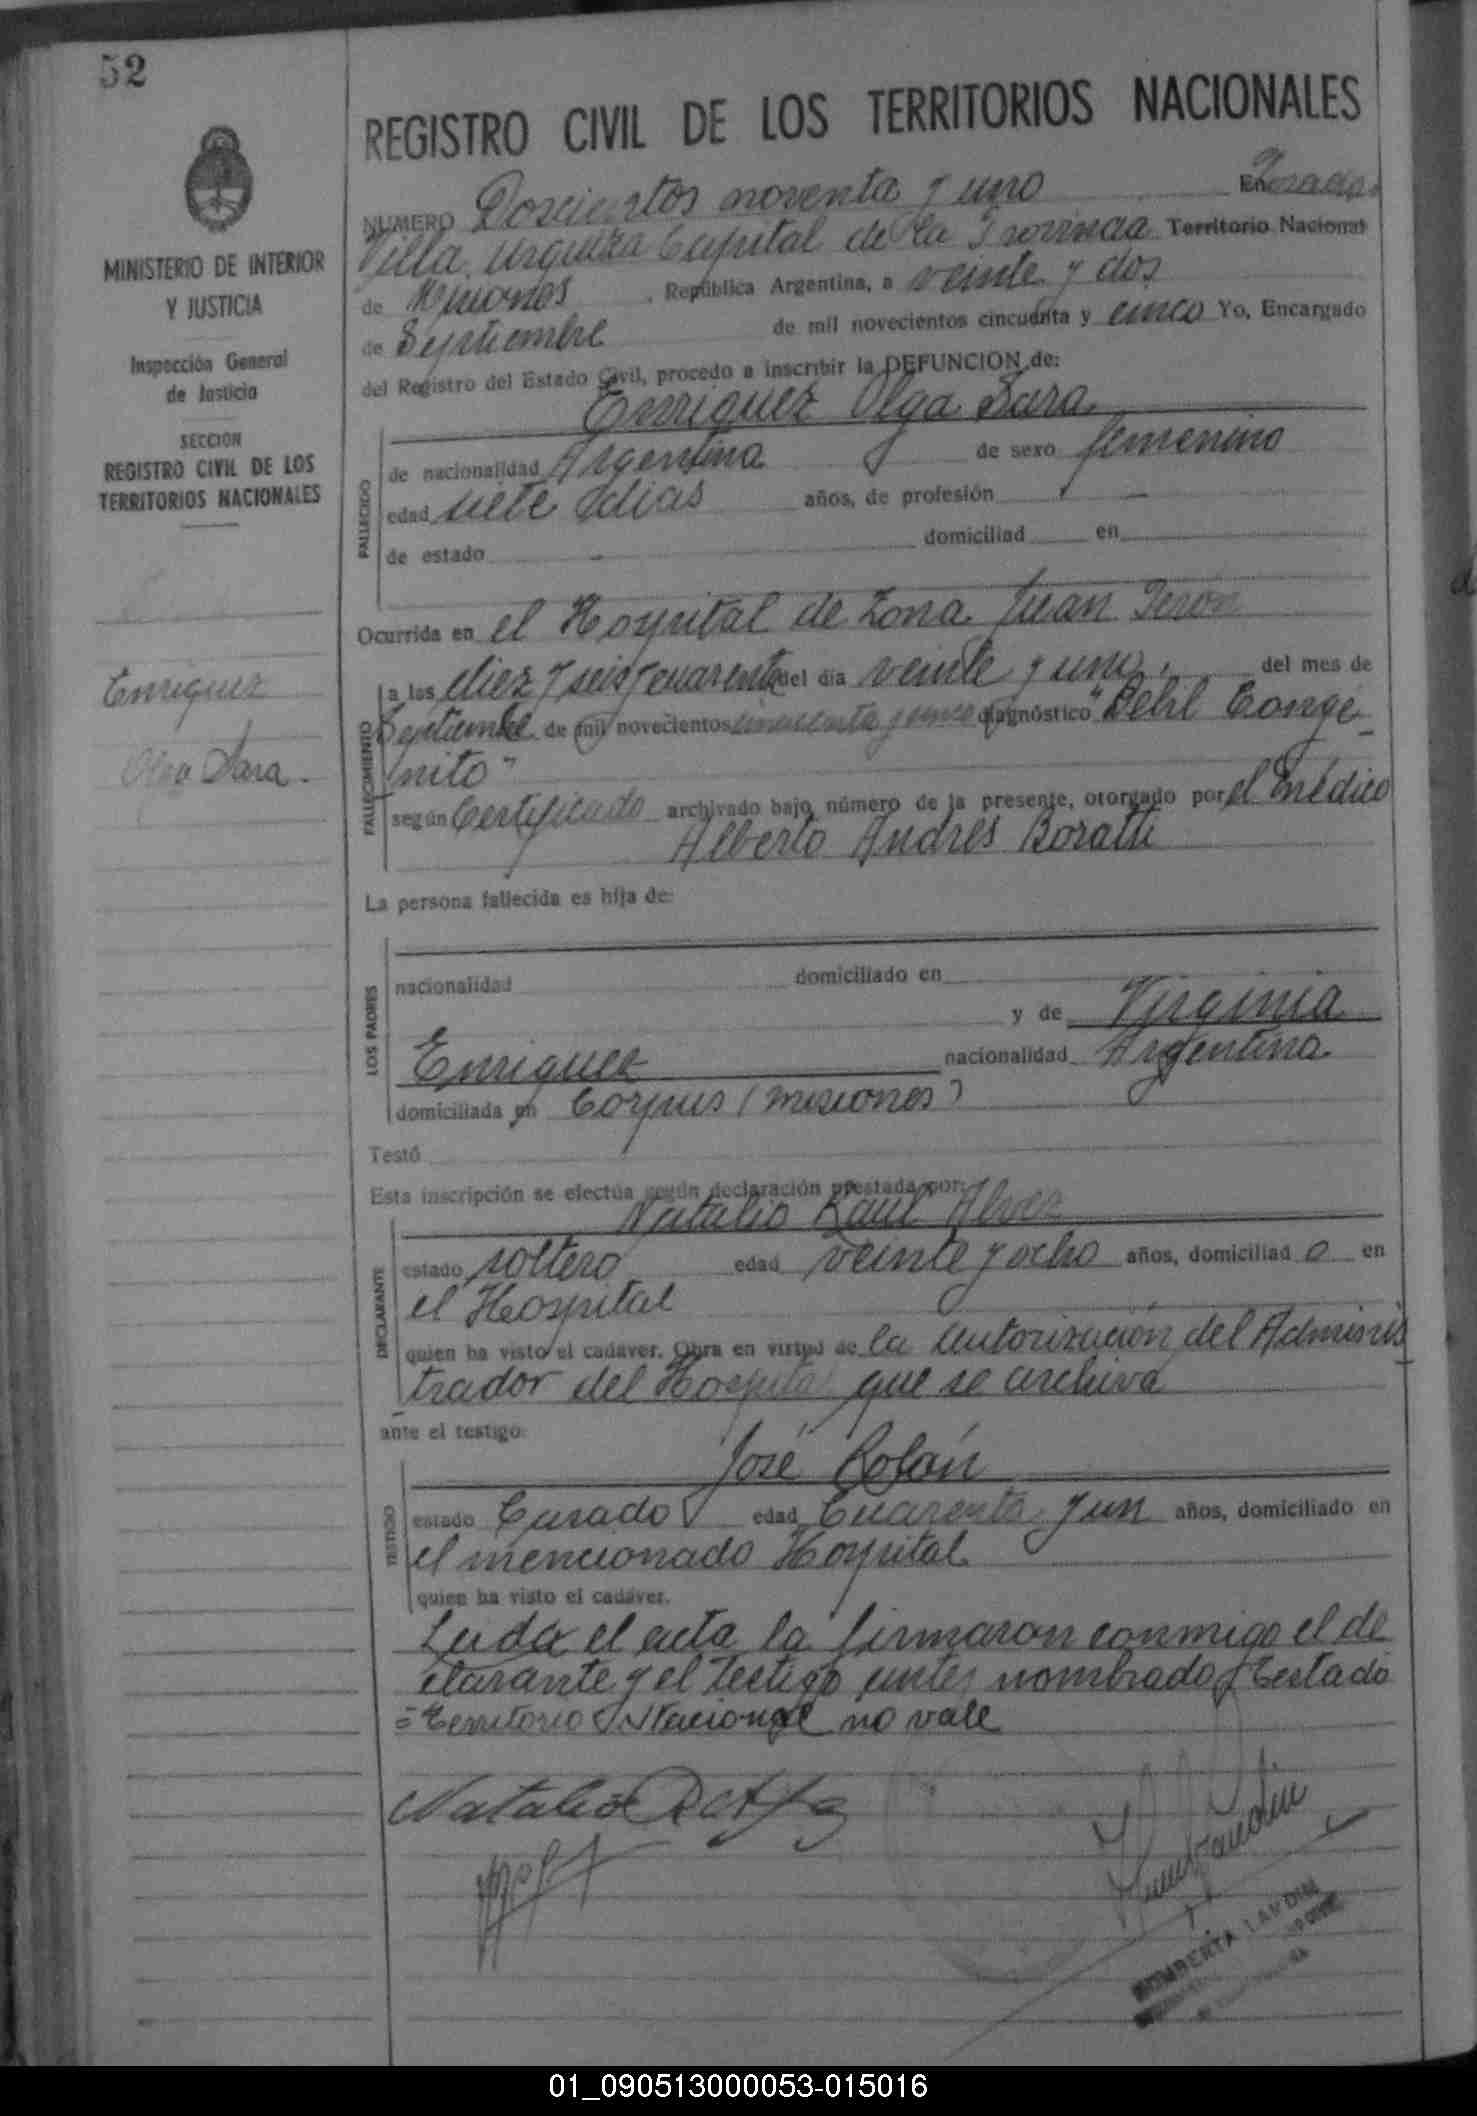 52
MINISTERIO DE INTERIOR
Y JUSTICIA
Inspección General
de Justicia
SECCION
REGISTRO CIVIL DE LOS
TERRITORIOS NACIONALES
Enriquez
Olga Sara.
REGISTRO CIVIL DE LOS TERRITORIOS NACIONALES
NUMERO Doscientos noventa y uno En Posadas
Villa Urquiza Capital de la Provincia Territorio Nacional
de Misiones, República Argentina, a veinte y dos
de Septiembre de mil novecientos cincuenta y cinco Yo, Encargado
del Registro del Estado Civil, procedo a inscribir la DEFUNCION de:
Enriquez Olga Sara
FALLECIDO
de nacionalidad Argentina de sexo femenino
edad siete dias años, de profesión —
de estado - domiciliad en
Ocurrida en el Hospital de Zona Juan Perón
FALLECIMIENTO
a las diez y seis y cuarenta del día veinte y uno, del mes de
Septiembre de mil novecientos cincuenta y cinco diagnóstico "Debil Congé-
nito"
según Certificado archivado bajo número de la presente, otorgado por el médico
Alberto Andres Boratti
La persona fallecida es hija de:
LOS PADRES
nacionalidad domiciliado en
y de Virginia
Enriquez nacionalidad Argentina
domiciliada en Corpus (Misiones)
Testó
Esta inscripción se efectúa según declaración prestada por:
Natalio Raul Alvez
DECLARANTE
estado soltero edad veinte y ocho años, domiciliad o en
el Hospital
quien ha visto el cadáver. Obra en virtud de la autorización del Adminis-
trador del Hospital que se archiva
ante el testigo:
José Rofán
TESTIGO
estado Casado edad Cuarenta y un años, domiciliado en
el mencionado Hospital
quien ha visto el cadáver.
Leida el acta la firmaron conmigo el de
clarante y el testigo antes nombrado Testado
= Territorio Nacional no vale
Natalio R
LANDIN
01_090513000053-015016